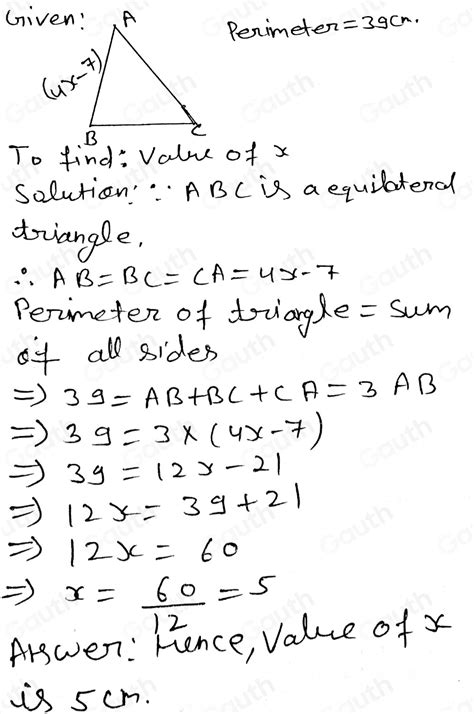 Given:
A
Perimeter = 39cm.
(4x-7)
B
C
To find: Value of x
Solution: ∵ ABC is a equilateral
triangle,
∴ AB = BC = CA = 4x-7
Perimeter of triangle = Sum
of all sides
⇒ 39 = AB+BC+CA = 3 AB
⇒ 39 = 3×(4x-7)
⇒ 39 = 12x-21
⇒ 12x = 39+21
⇒ 12x = 60
⇒ x = 60/12 = 5
Answer: Hence, Value of x
is 5 cm.
Gauth